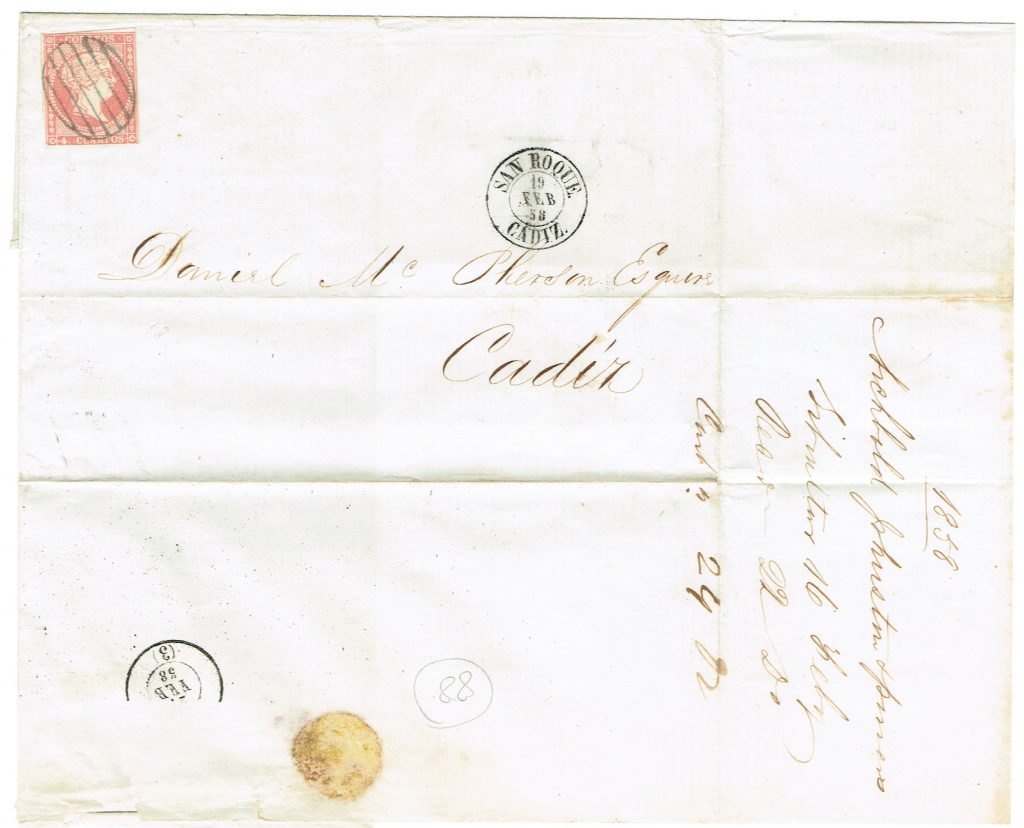 CORREOS
4. CUARTOS
SAN ROQUE.
19
FEB
58
CADIZ.
Daniel Mc Pherson Esquire
Cadiz
1858
Archbold Johnston & Powers
Gibraltar 16 Feby
Recd 22 Do
Ansd 24 Do
(3)
58
FEB
88